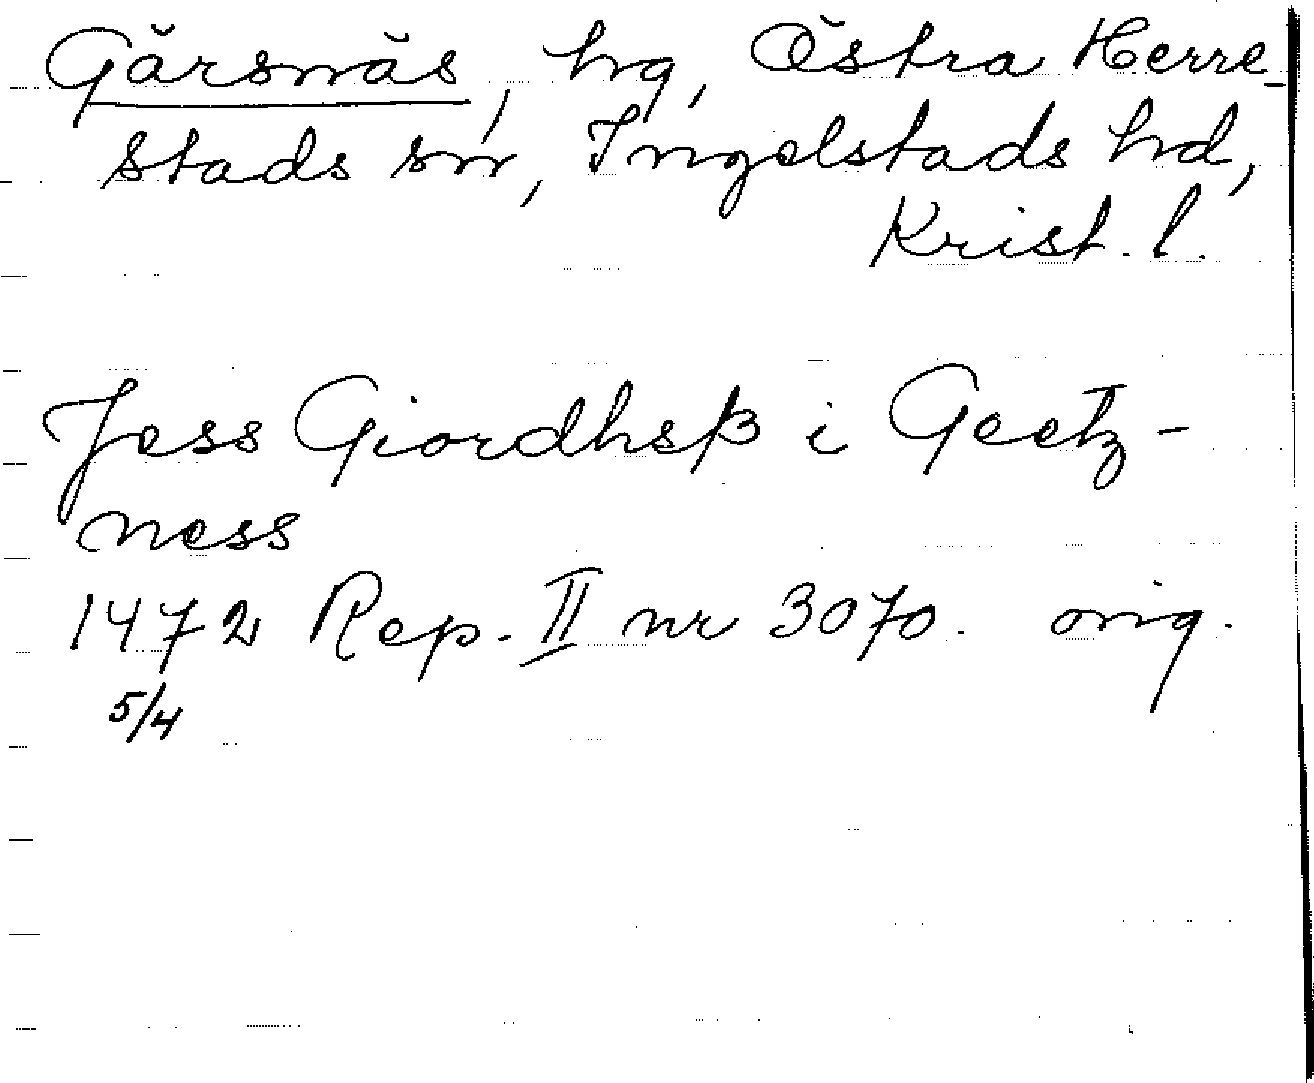 Gärsnäs, hg, Östra Herre-
stads sn, Ingelstads hd,
Krist. l.
Jess Giordhsß i Geetz-
ness
1472 Rep. II nr 3070. orig.
5/4